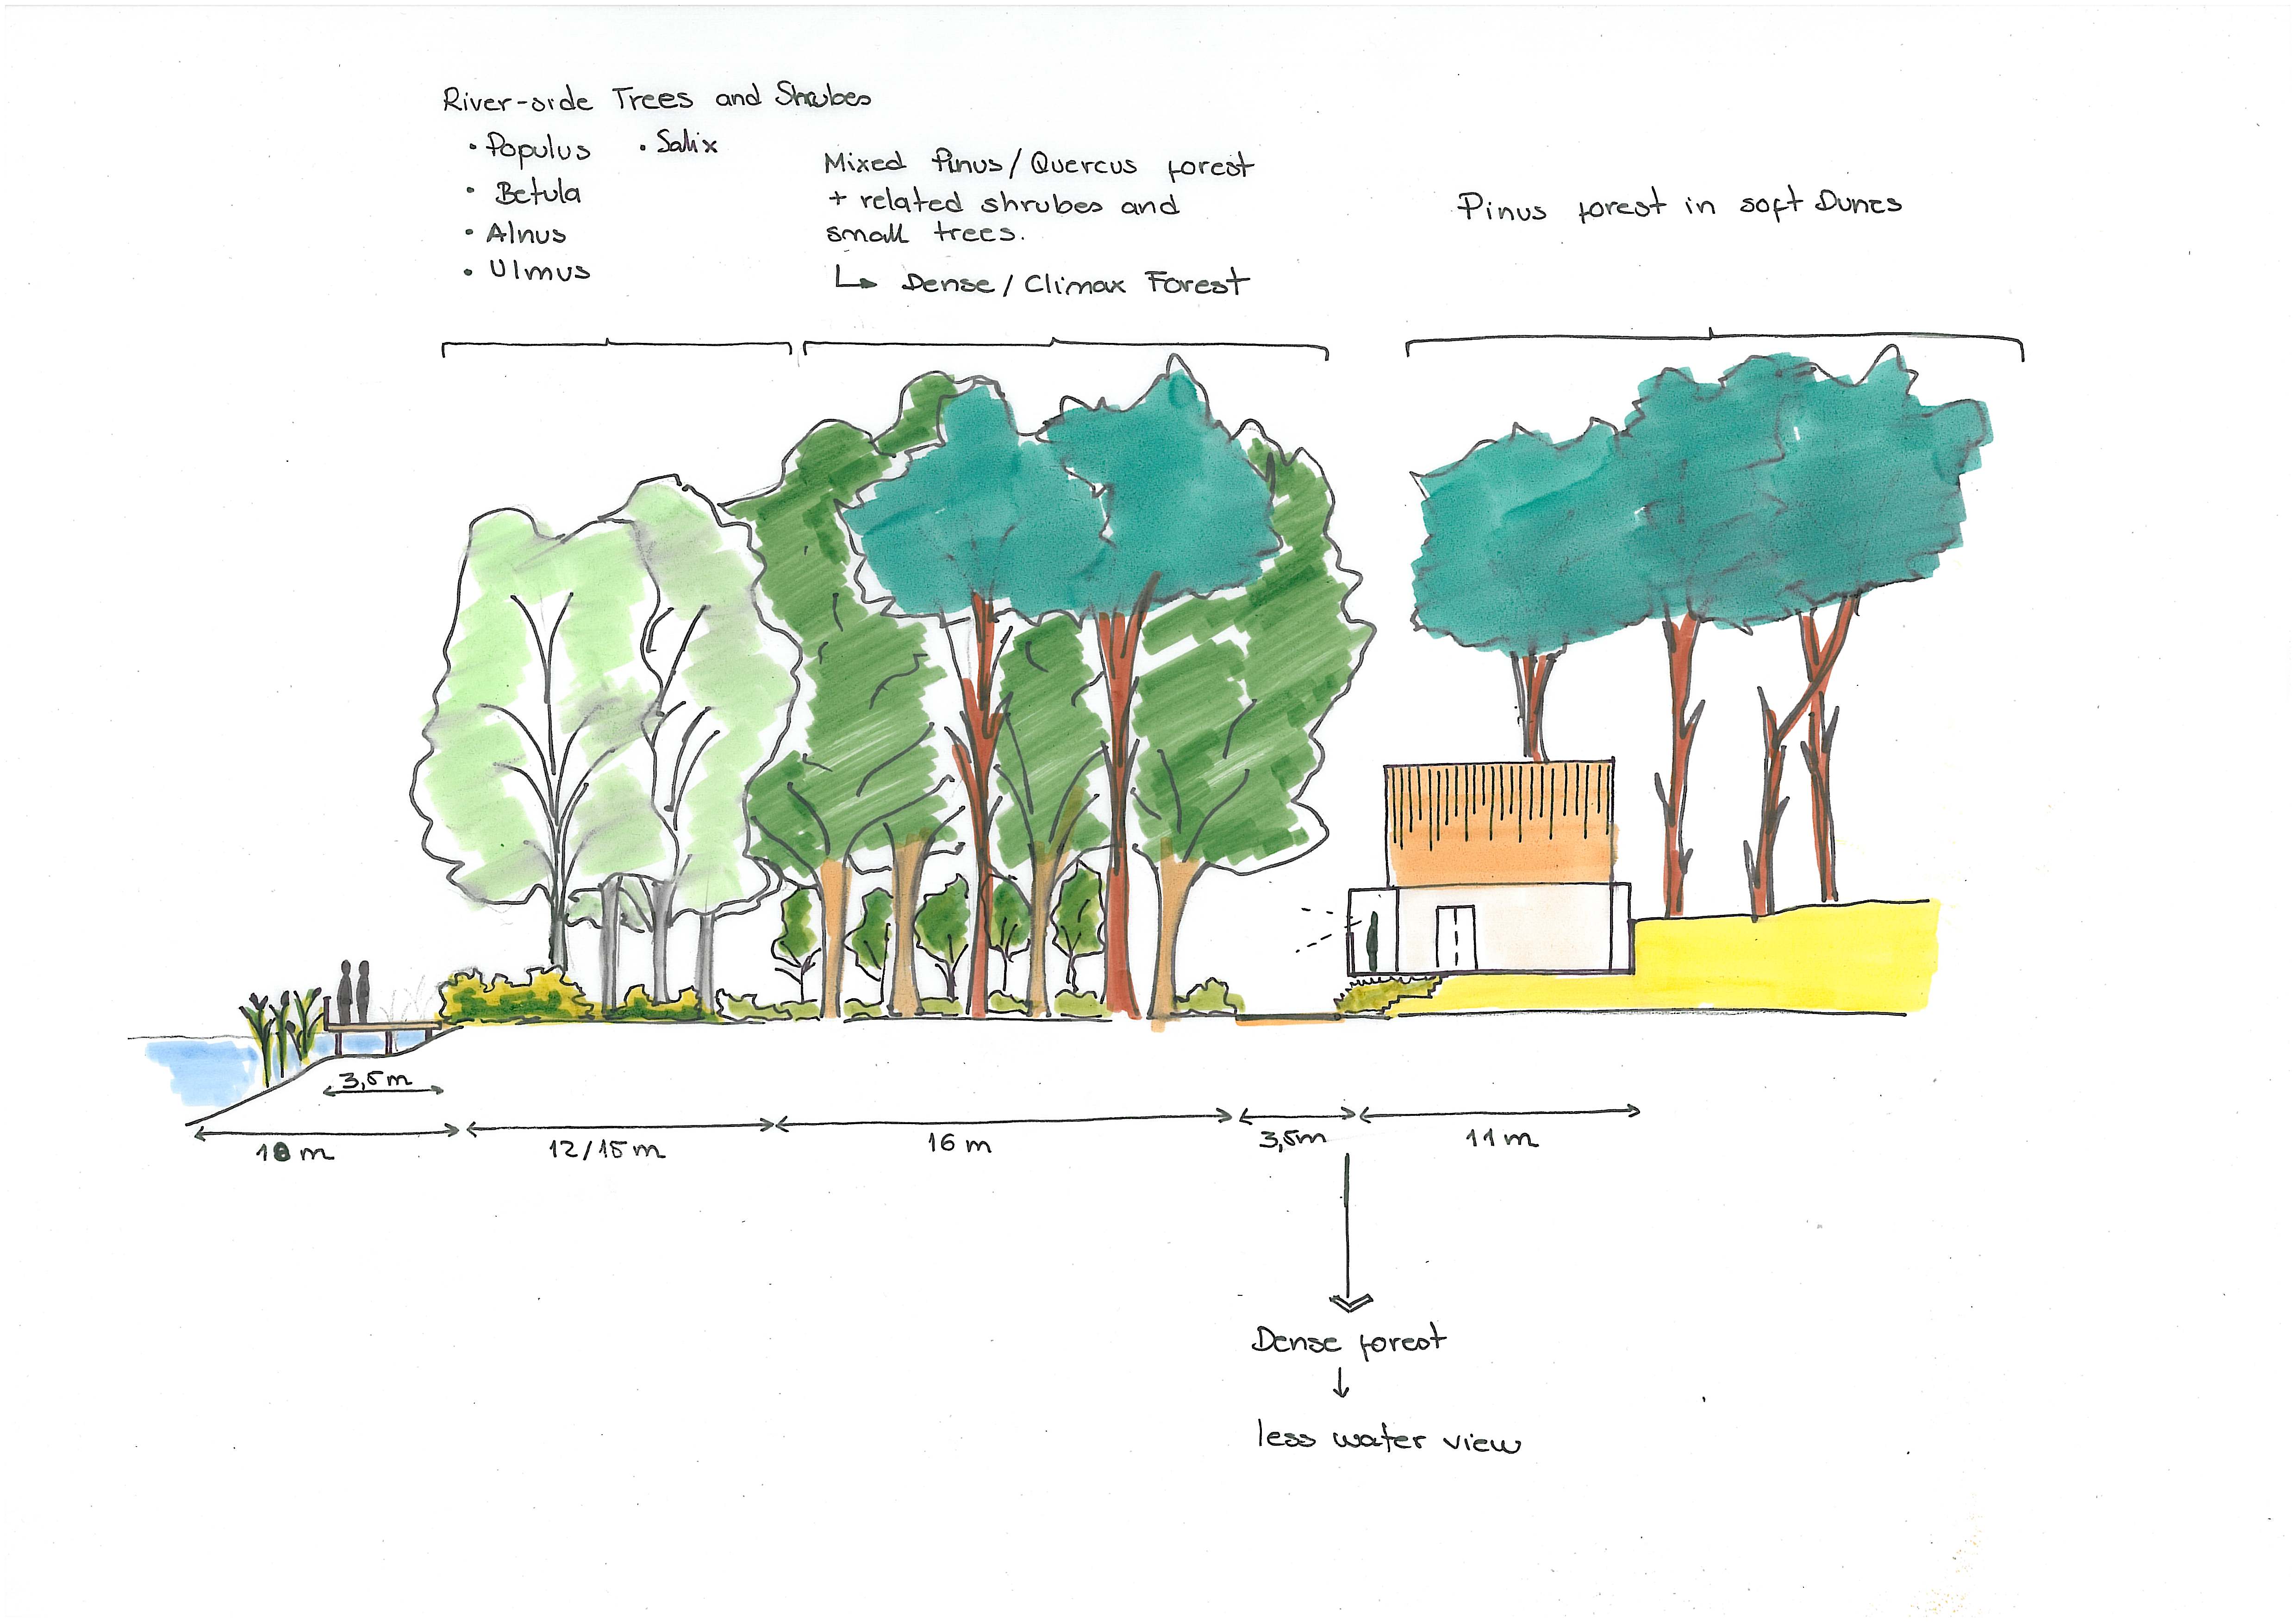 River-side Trees and Shrubes
• Populus • Salix
• Betula
• Alnus
• Ulmus
Mixed Pinus/Quercus forest
+ related shrubes and
small trees.
↳ Dense/Climax Forest
Pinus forest in soft Dunes
3,5m
10 m
12/15 m
16 m
3,5m
11 m
Dense forest
↓
less water view